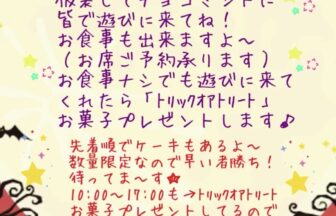 仮装してチョコミントに
皆で遊びに来てね！
お食事も出来ますよ〜
（お席ご予約承ります）
お食事ナシでも遊びに来て
くれたら「トリックオアトリート」
お菓子プレゼントします♪
先着順でケーキもあるよ〜
数量限定なので早い者勝ち！
待ってま〜す☆
10:00〜17:00も→トリックオアトリート
お菓子プレゼントしてるので